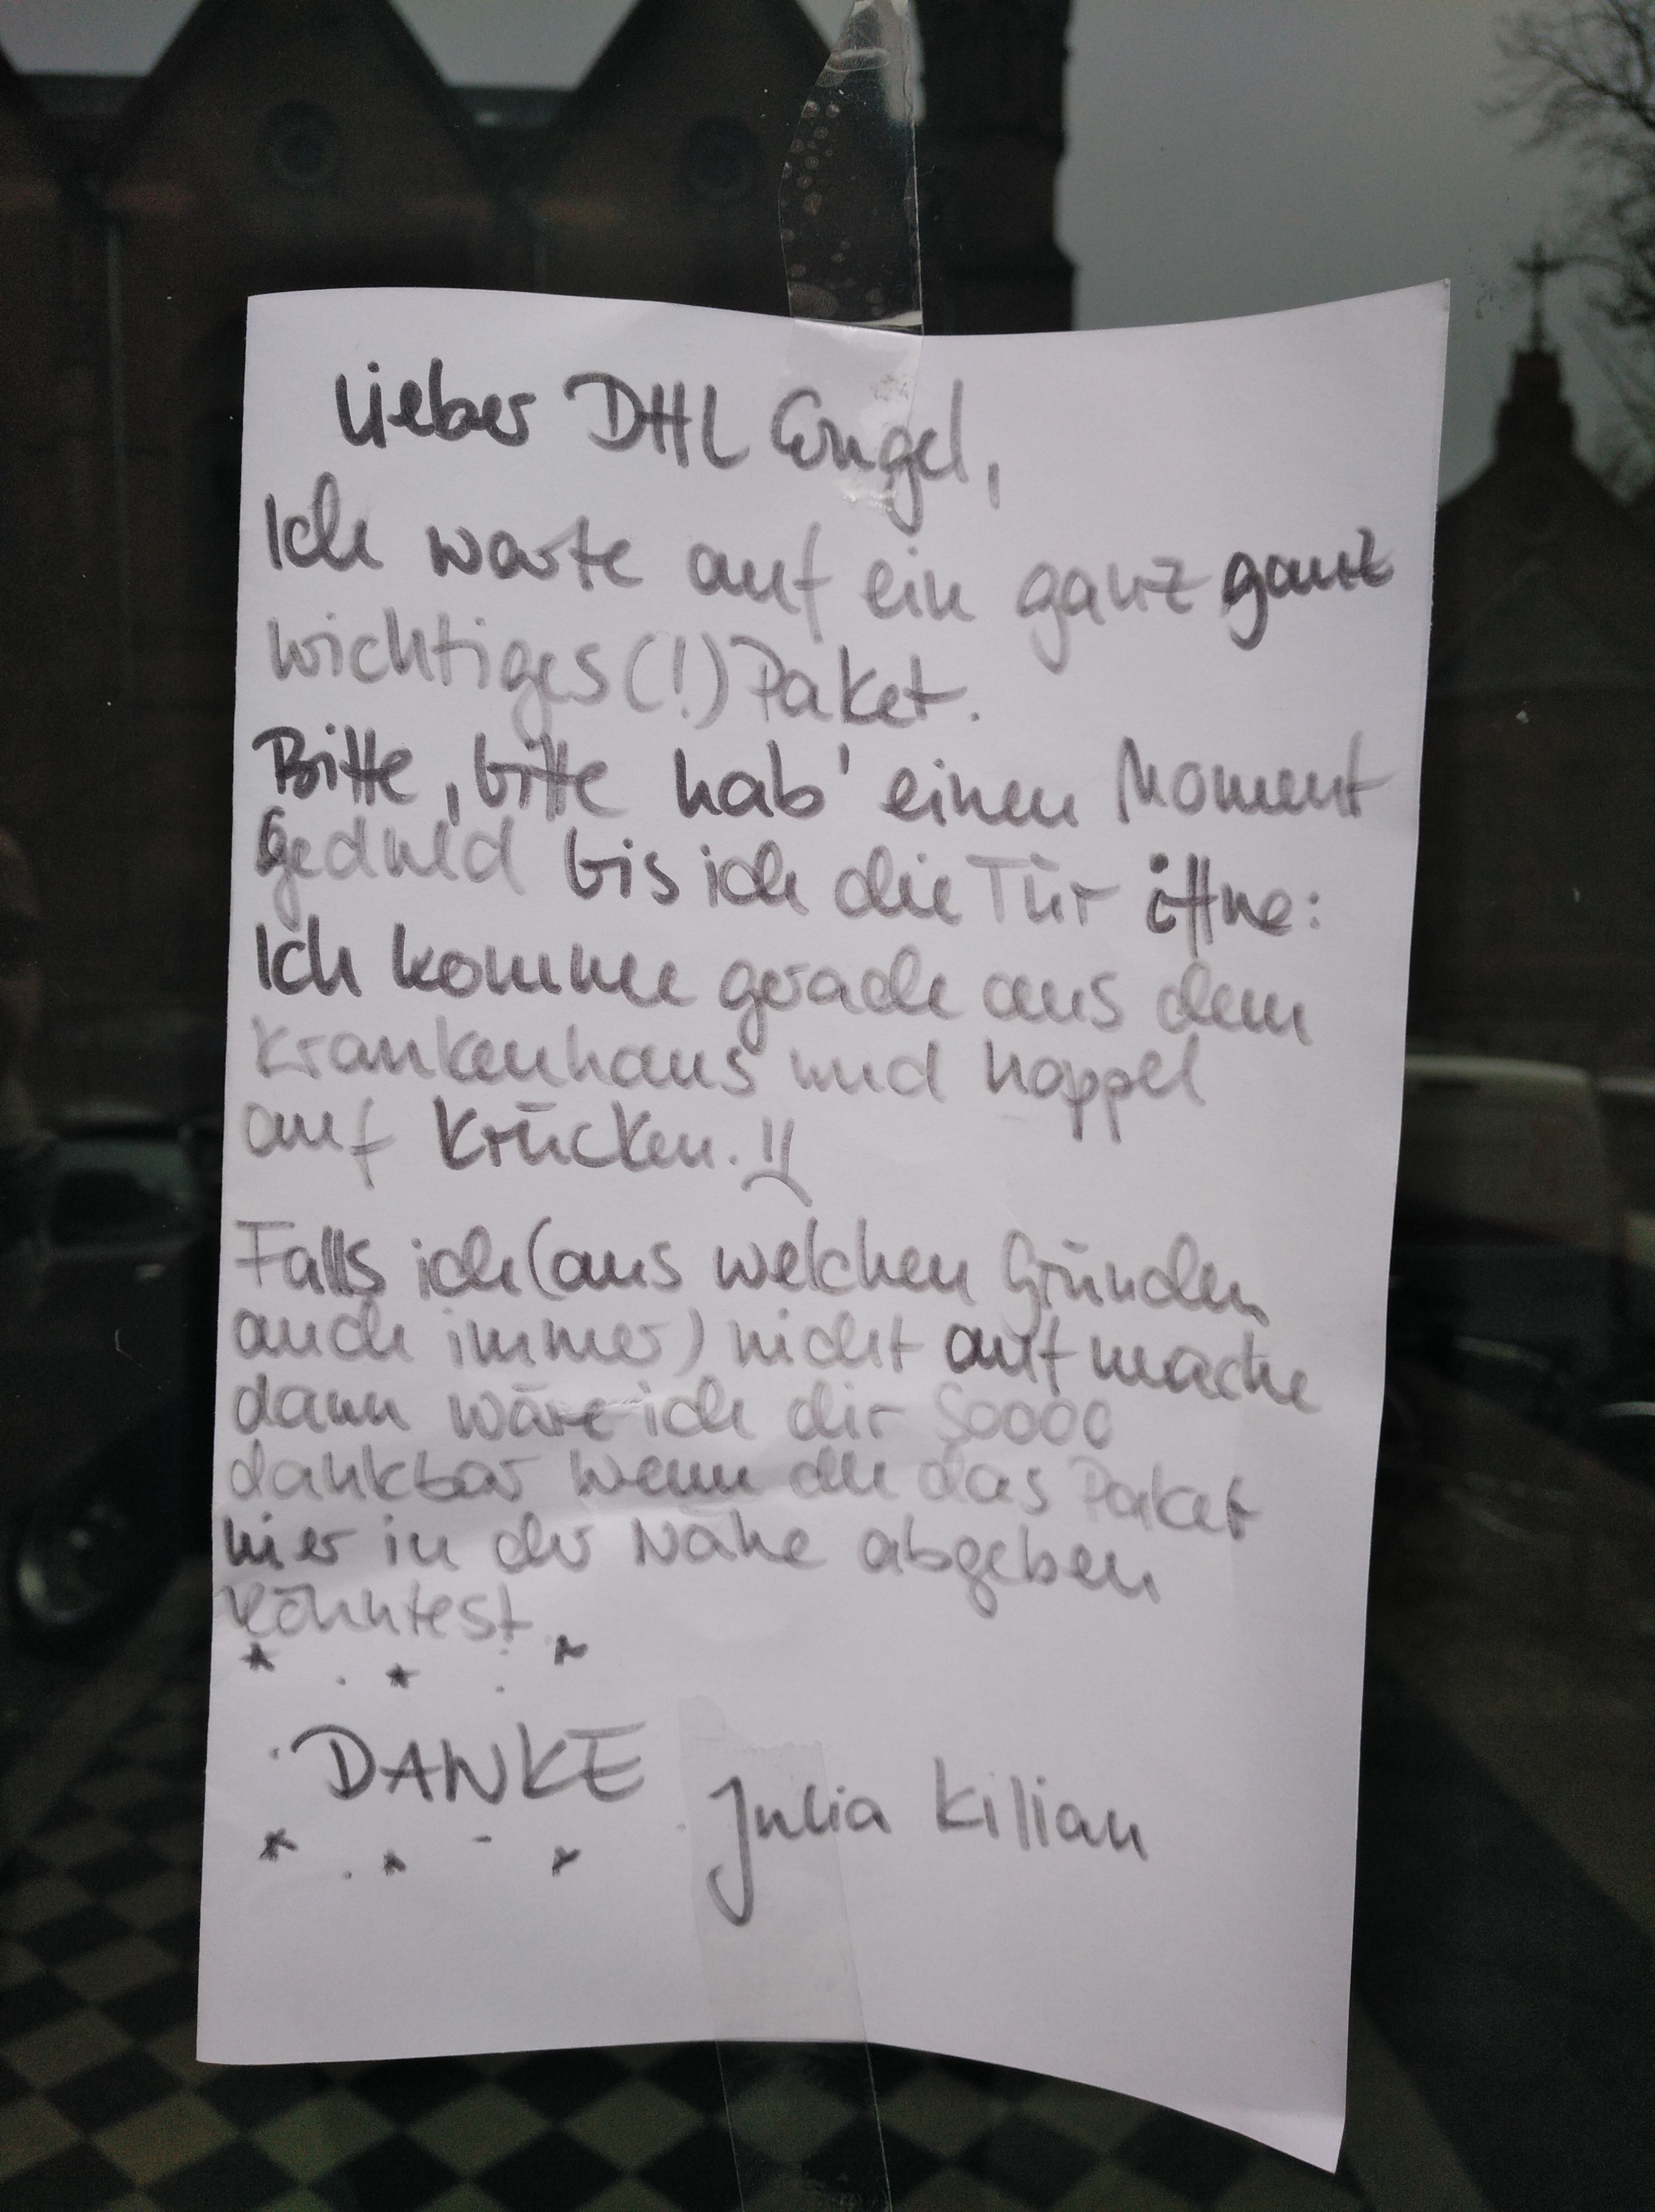 Lieber DHL Engel,
Ich warte auf ein ganz ganz
wichtiges (!) Paket.
Bitte, bitte hab' einen Moment
Geduld bis ich die Tür öffne:
Ich komme gerade aus dem
Krankenhaus und hoppel
auf Krücken. !!
Falls ich (aus welchen Gründen
auch immer) nicht aufmache
dann wäre ich dir Soooo
dankbar wenn du das Paket
hier in der Nähe abgeben
könntest.
DANKE
Julia Kilian